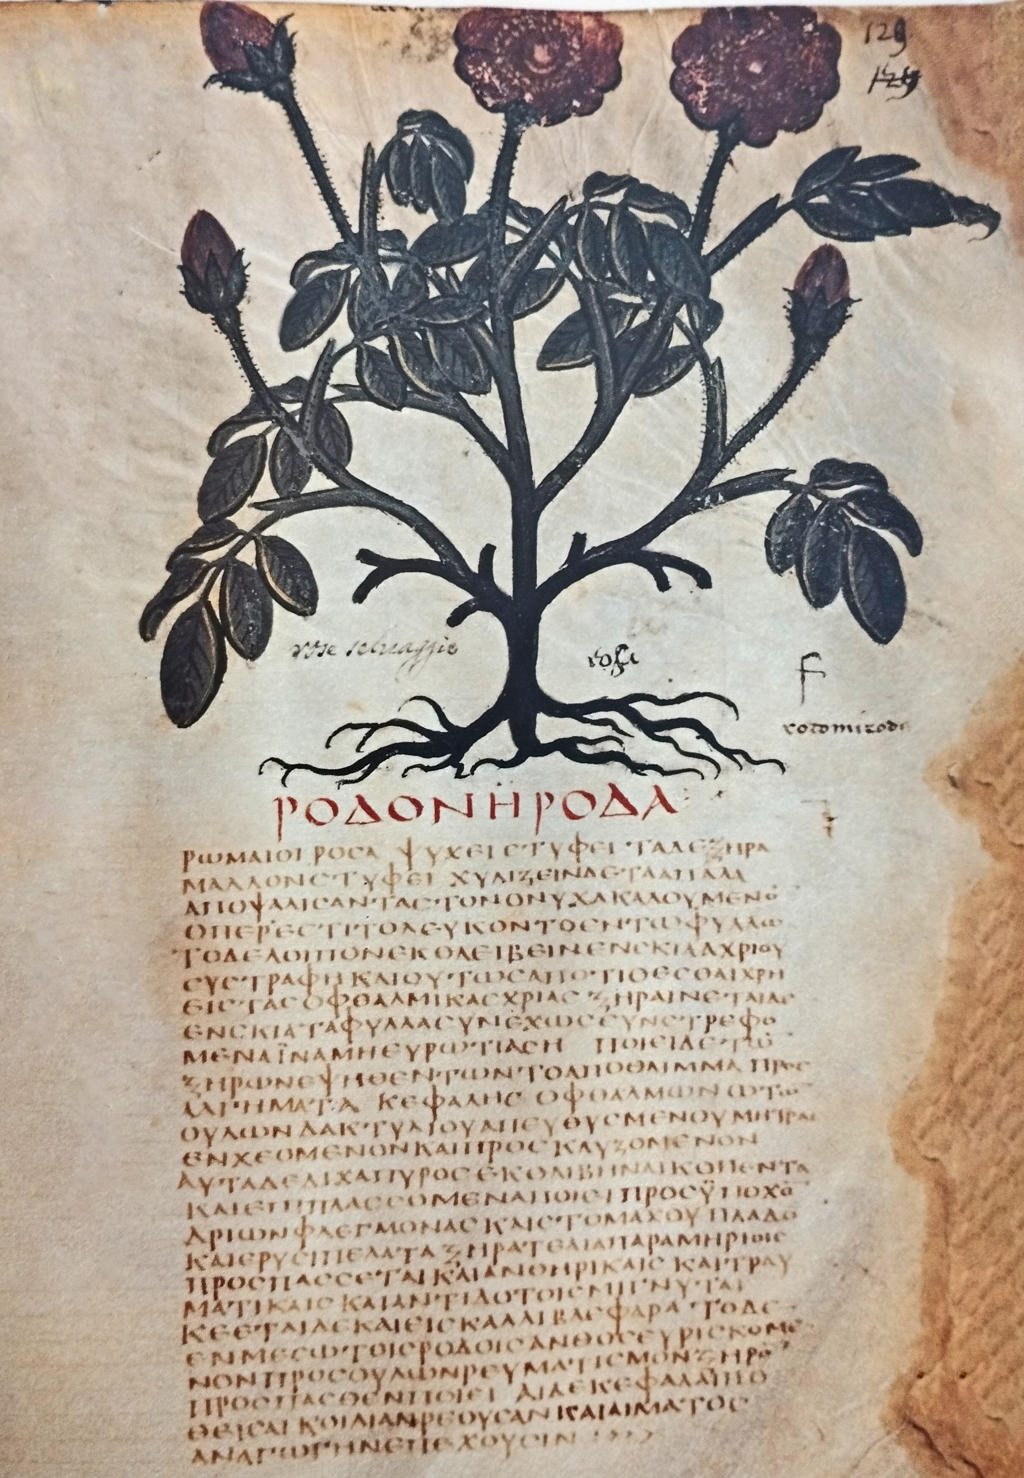 129
129
rose seluaggie
rose
ΡΟΔΟΝ Η ΡΟΔΑ
ΡωΜΑΙΟΙ ΡΟϹΑ ΨΥΧΕΙ ϹΤΥΦΕΙ ΤΑ ΔΕ ΞΗΡΑ
ΜΑΛΛΟΝ ϹΤΥΦΕΙ ΧΥΛΙΖΕΙΝ ΔΕ ΤΑ ΑΠΑΛΑ
ΑΠΟΨΑΛΙϹΑΝΤΑϹ ΤΟΝ ΟΝΥΧΑ ΚΑΛΟΥΜΕΝΟ
ΟΠΕΡ ΕϹΤΙ ΤΟ ΛΕΥΚΟΝ ΤΟ ΕΝ Τω ΦΥΛΛω
ΤΟ ΔΕ ΛΟΙΠΟΝ ΕΝ ϹΚΙΑ ΑΧΡΙ ΟΥ
ϹΥϹΤΡΑΦΗ ΚΑΙ ΟΥΤωϹ ΑΠΟΤΙΘΕϹΘΑΙ ΧΡΗ
ΕΙϹ ΤΑϹ ΟΦΘΑΛΜΙΚΑϹ ΧΡΙΑϹ ΞΗΡΑΙΝΕΤΑΙ ΔΕ
ΕΝ ϹΚΙΑ ΤΑ ΦΥΛΛΑ ϹΥΝΕΧωϹ ϹΥΝϹΤΡΕΦΟ
ΜΕΝΑ ΪΝΑ ΜΗ ΕΥΡωΤΙΑϹΗ ΠΟΙΕΙ ΔΕ Τω
ΞΗΡωΝ ΕΨΗΘΕΝΤωΝ ΤΟ ΑΠΟΘΛΙΜΜΑ ΠΡΟϹ
ΑΛΓΗΜΑΤΑ ΚΕΦΑΛΗϹ ΟΦΘΑΛΜωΝ ωΤω
ΟΥΛωΝ ΔΑΚΤΥΛΙΟΥ ΑΠΕΥΘΥϹΜΕΝΟΥ ΜΗΤΡΑϹ
ΕΝΧΕΟΜΕΝΟΝ ΚΑΙ ΠΡΟϹΚΛΥΖΟΜΕΝΟΝ
ΑΥΤΑ ΔΕ ΔΙΧΑ ΠΥΡΟϹ ΚΟΠΕΝΤΑ
ΚΑΙ ΕΠΙΠΛΑϹϹΟΜΕΝΑ ΠΟΙΕΙ ΠΡΟϹ ΫΠΟΧΟ
ΔΡΙωΝ ΦΛΕΓΜΟΝΑϹ ΚΑΙ ϹΤΟΜΑΧΟΥ ΠΛΑΔΟ
ΚΑΙ ΕΡΥϹΙΠΕΛΑΤΑ ΞΗΡΑ ΤΕ ΛΙΑ ΠΑΡΑΜΗΡΙΟΙϹ
ΠΡΟϹΠΑϹϹΕΤΑΙ ΚΑΙ ΑΝΘΗΡΙΚΑΙϹ ΚΑΙ ΤΡΑΥ
ΜΑΤΙΚΑΙϹ ΚΑΙ ΑΝΤΙΔΟΤΟΙϹ ΜΙΓΝΥΤΑΙ
ΚΕΕΤΑΙ ΔΕ ΚΑΙ ΕΙϹ ΚΑΛΛΙΒΛΕΦΑΡΑ ΤΟ ΔΕ
ΕΝ ΜΕϹω ΤΟΙϹ ΡΟΔΟΙϹ ΑΝΘΟϹ ΕΥΡΙϹΚΟΜΕ
ΝΟΝ ΠΡΟϹ ΟΥΛωΝ ΡΕΥΜΑΤΙϹΜΟΝ ΞΗΡΟ
ΠΡΟϹΠΑϹΘΕΝ ΠΟΙΕΙ ΑΙ ΔΕ ΚΕΦΑΛΑΙ ΠΟ
ΘΕΙϹΑΙ ΚΟΙΛΙΑΝ ΡΕΟΥϹΑΝ ΚΑΙ ΑΙΜΑΤΟϹ
ΑΝΑΓωΓΗΝ ΕΠΕΧΟΥϹΙΝ